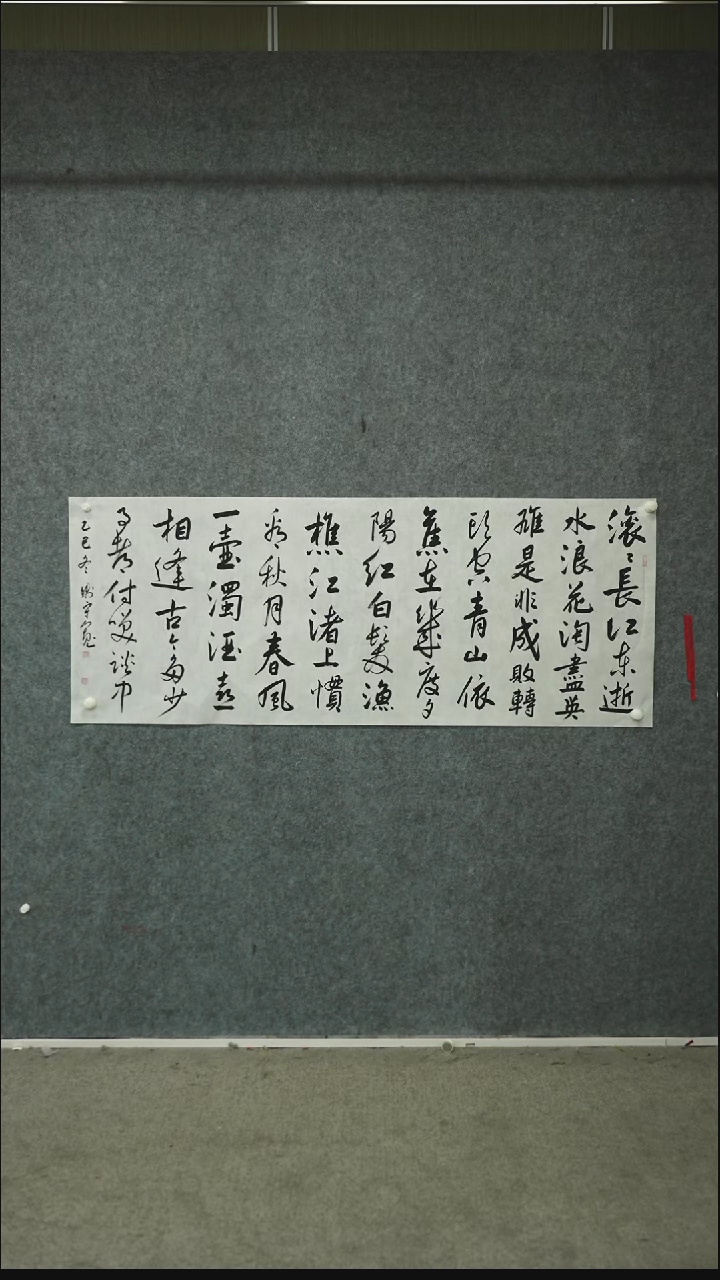 滚〻長江东逝
水浪花淘盡英
雄是非成敗轉
头空青山依
舊在幾度夕
陽红白髮漁
樵江渚上慣
看秋月春風
一壺濁酒喜
相逢古今多少
事都付笑談中
乙巳冬